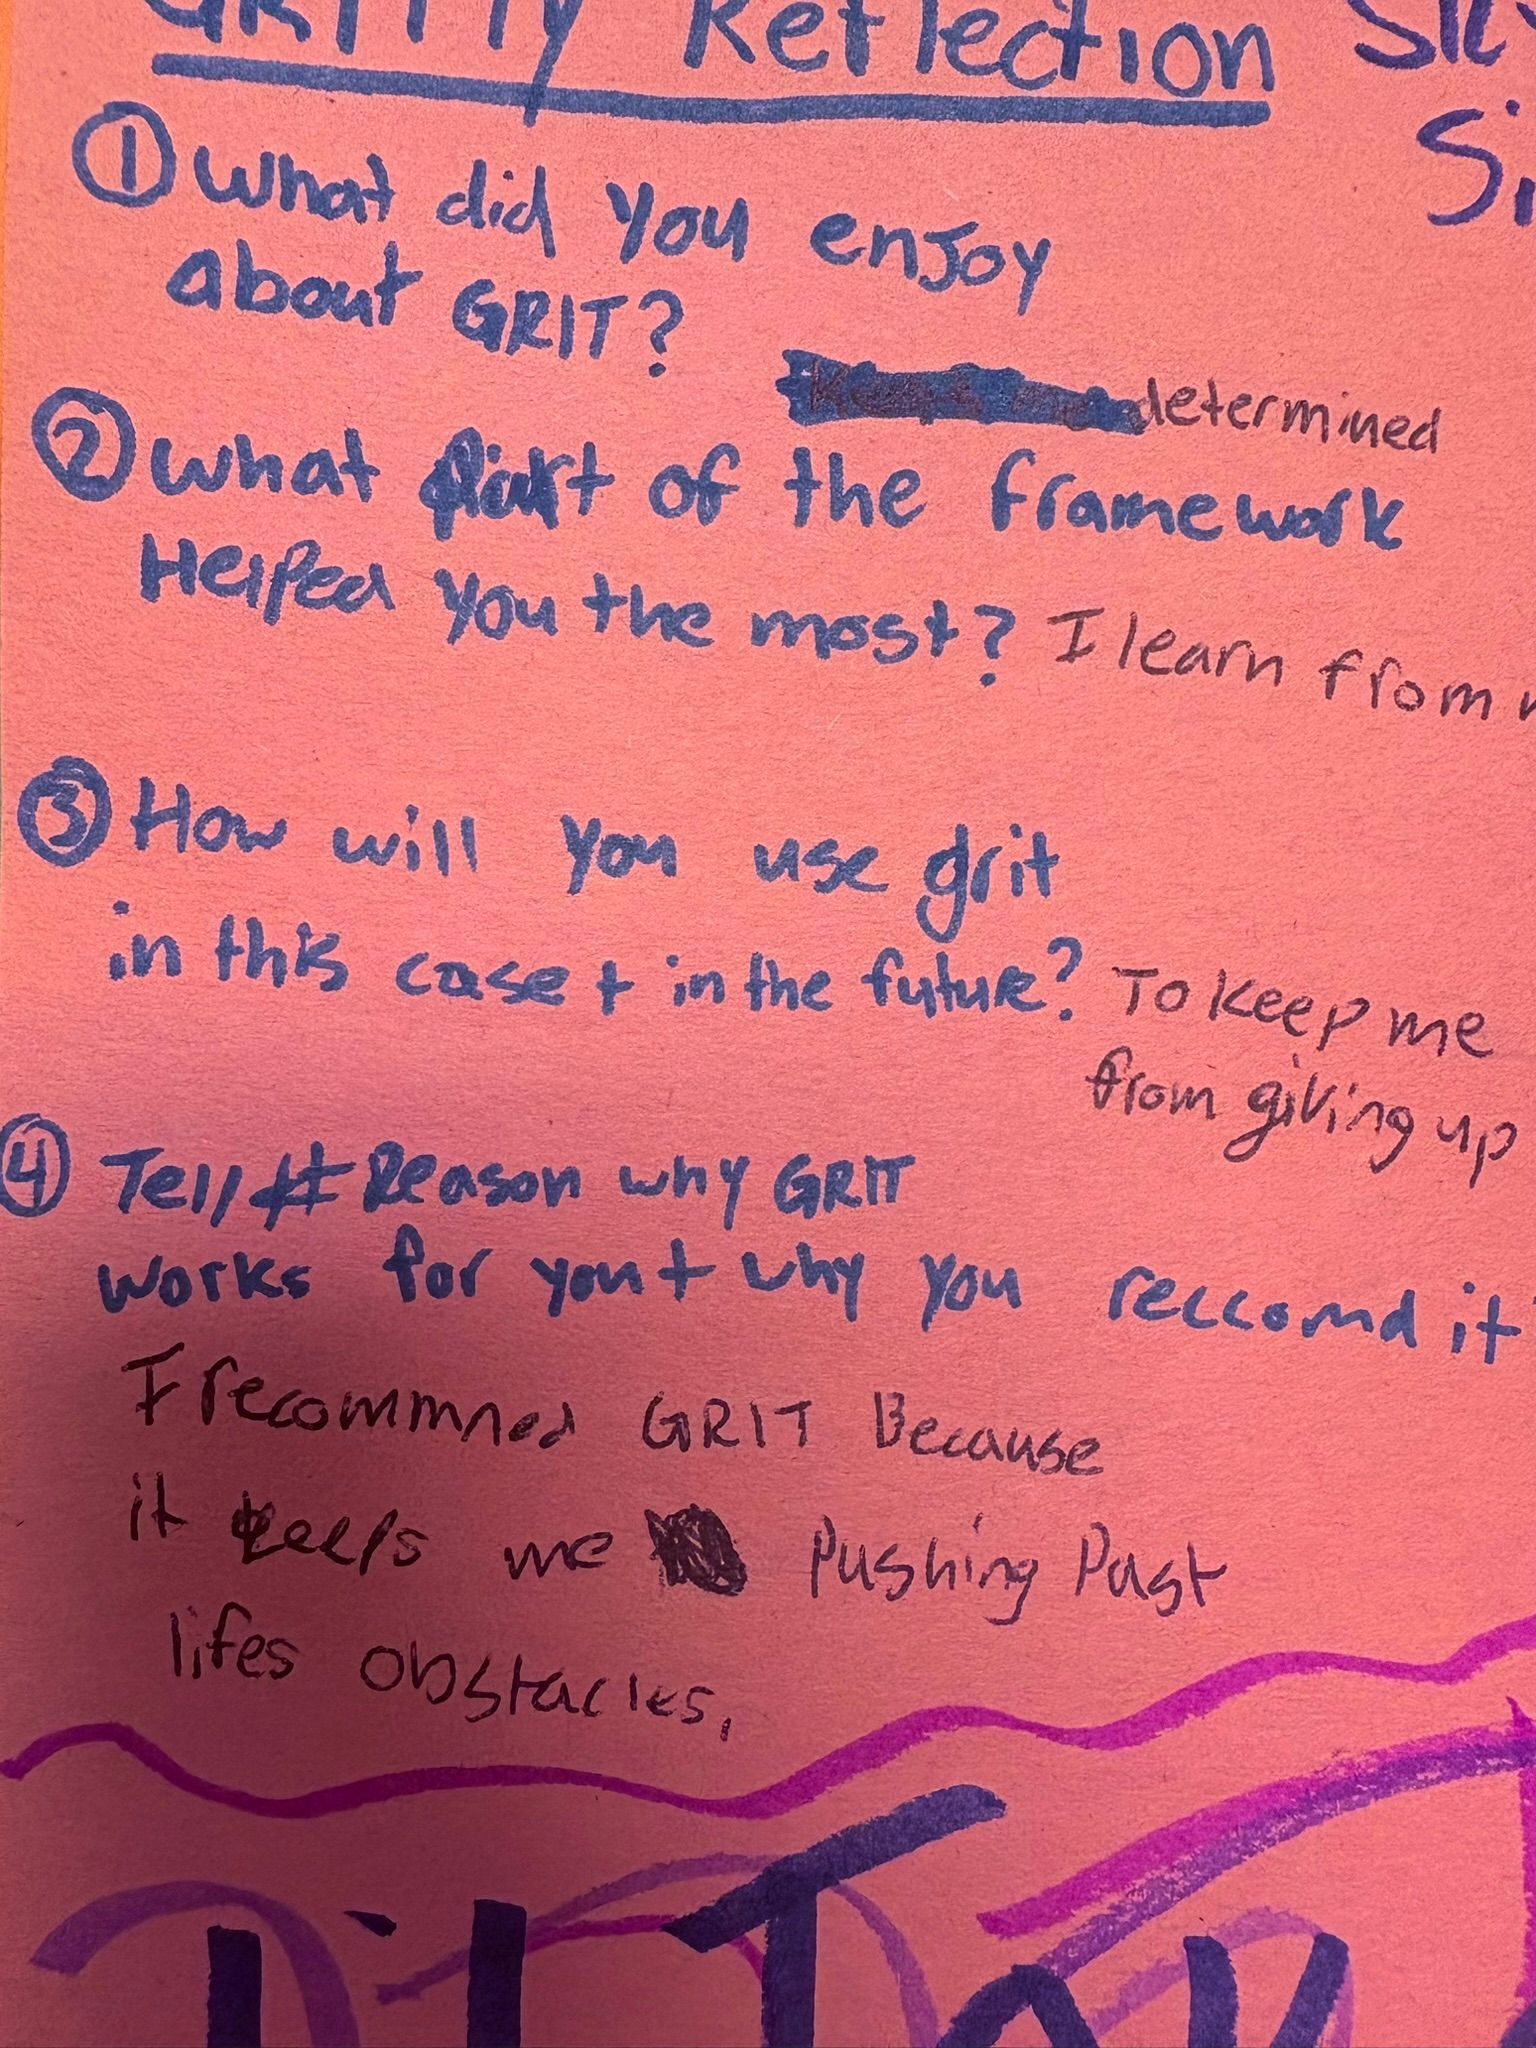 GRITTY Reflection
① What did you enJoy
about GRIT?
determined
② What part of the framework
Helped you the most? I learn from
③ How will you use grit
in this case + in the future? To keep me
from giving up
④ Tell # Reason why GRIT
works for you + why you reccomd it
I recommned GRIT Because
it keeps me Pushing Past
lifes obstacles.